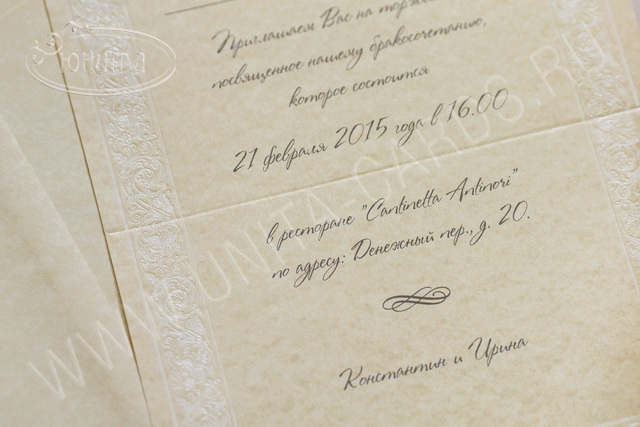 Юнита
Приглашаем Вас на торж
посвященное нашему бракосочетанию,
которое состоится
21 февраля 2015 года в 16.00
в ресторане "Cantinetta Antinori"
по адресу: Денежный пер., д. 20.
Константин и Ирина
WWW.UNITA-CARDS.RU